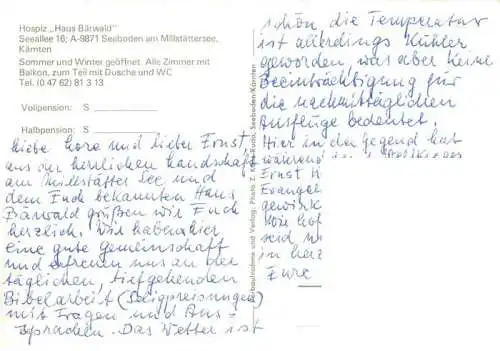 Hospiz „Haus Bärwald"
Seeallee 16; A-9871 Seeboden am Millstättersee,
Kärnten
Sommer und Winter geöffnet. Alle Zimmer mit
Balkon, zum Teil mit Dusche und WC
Tel. (0 47 62) 81 3 13
Vollpension: S
Halbpension: S
Liebe Lore und lieber Ernst
aus der herrlichen Landschaft
am Millstätter See und
dem Euch bekannten Haus
Bärwald grüßen wir Euch
herzlich. Wir haben hier
eine gute Gemeinschaft
und erfreuen uns an der
täglichen, tiefgehenden
Bibelarbeit (Seligpreisungen)
mit Fragen und Aus-
sprachen. Das Wetter ist
schön, die Temperatur
ist allerdings kühler
geworden, was aber keine
Beeinträchtigung für
die nachmittäglichen
Ausflüge bedeutet.
Hier in der Gegend hat
während
Ernst
Evangel
gewirk
Wie hof
seid
in herz
Eure
Farbaufnahme und Verlag: Photo Z. Seeboden/Kärnten